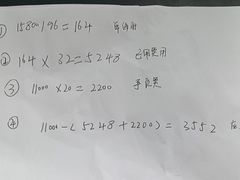 ① 15800/96=164
② 164×32=5248 已用费用
③ 11000×20=2200 手续费
④ 11000-(5248+2200)=3552